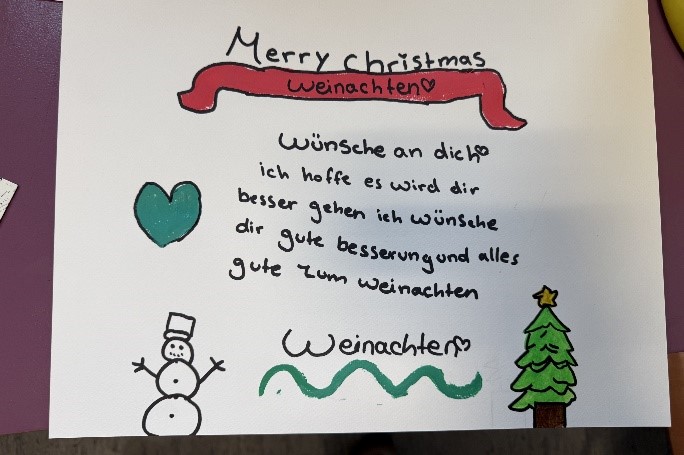 Merry christmas
Weinachten
Wünsche an dich
ich hoffe es wird dir
besser gehen ich wünsche
dir gute besserung und alles
gute zum weinachten
Weinachten